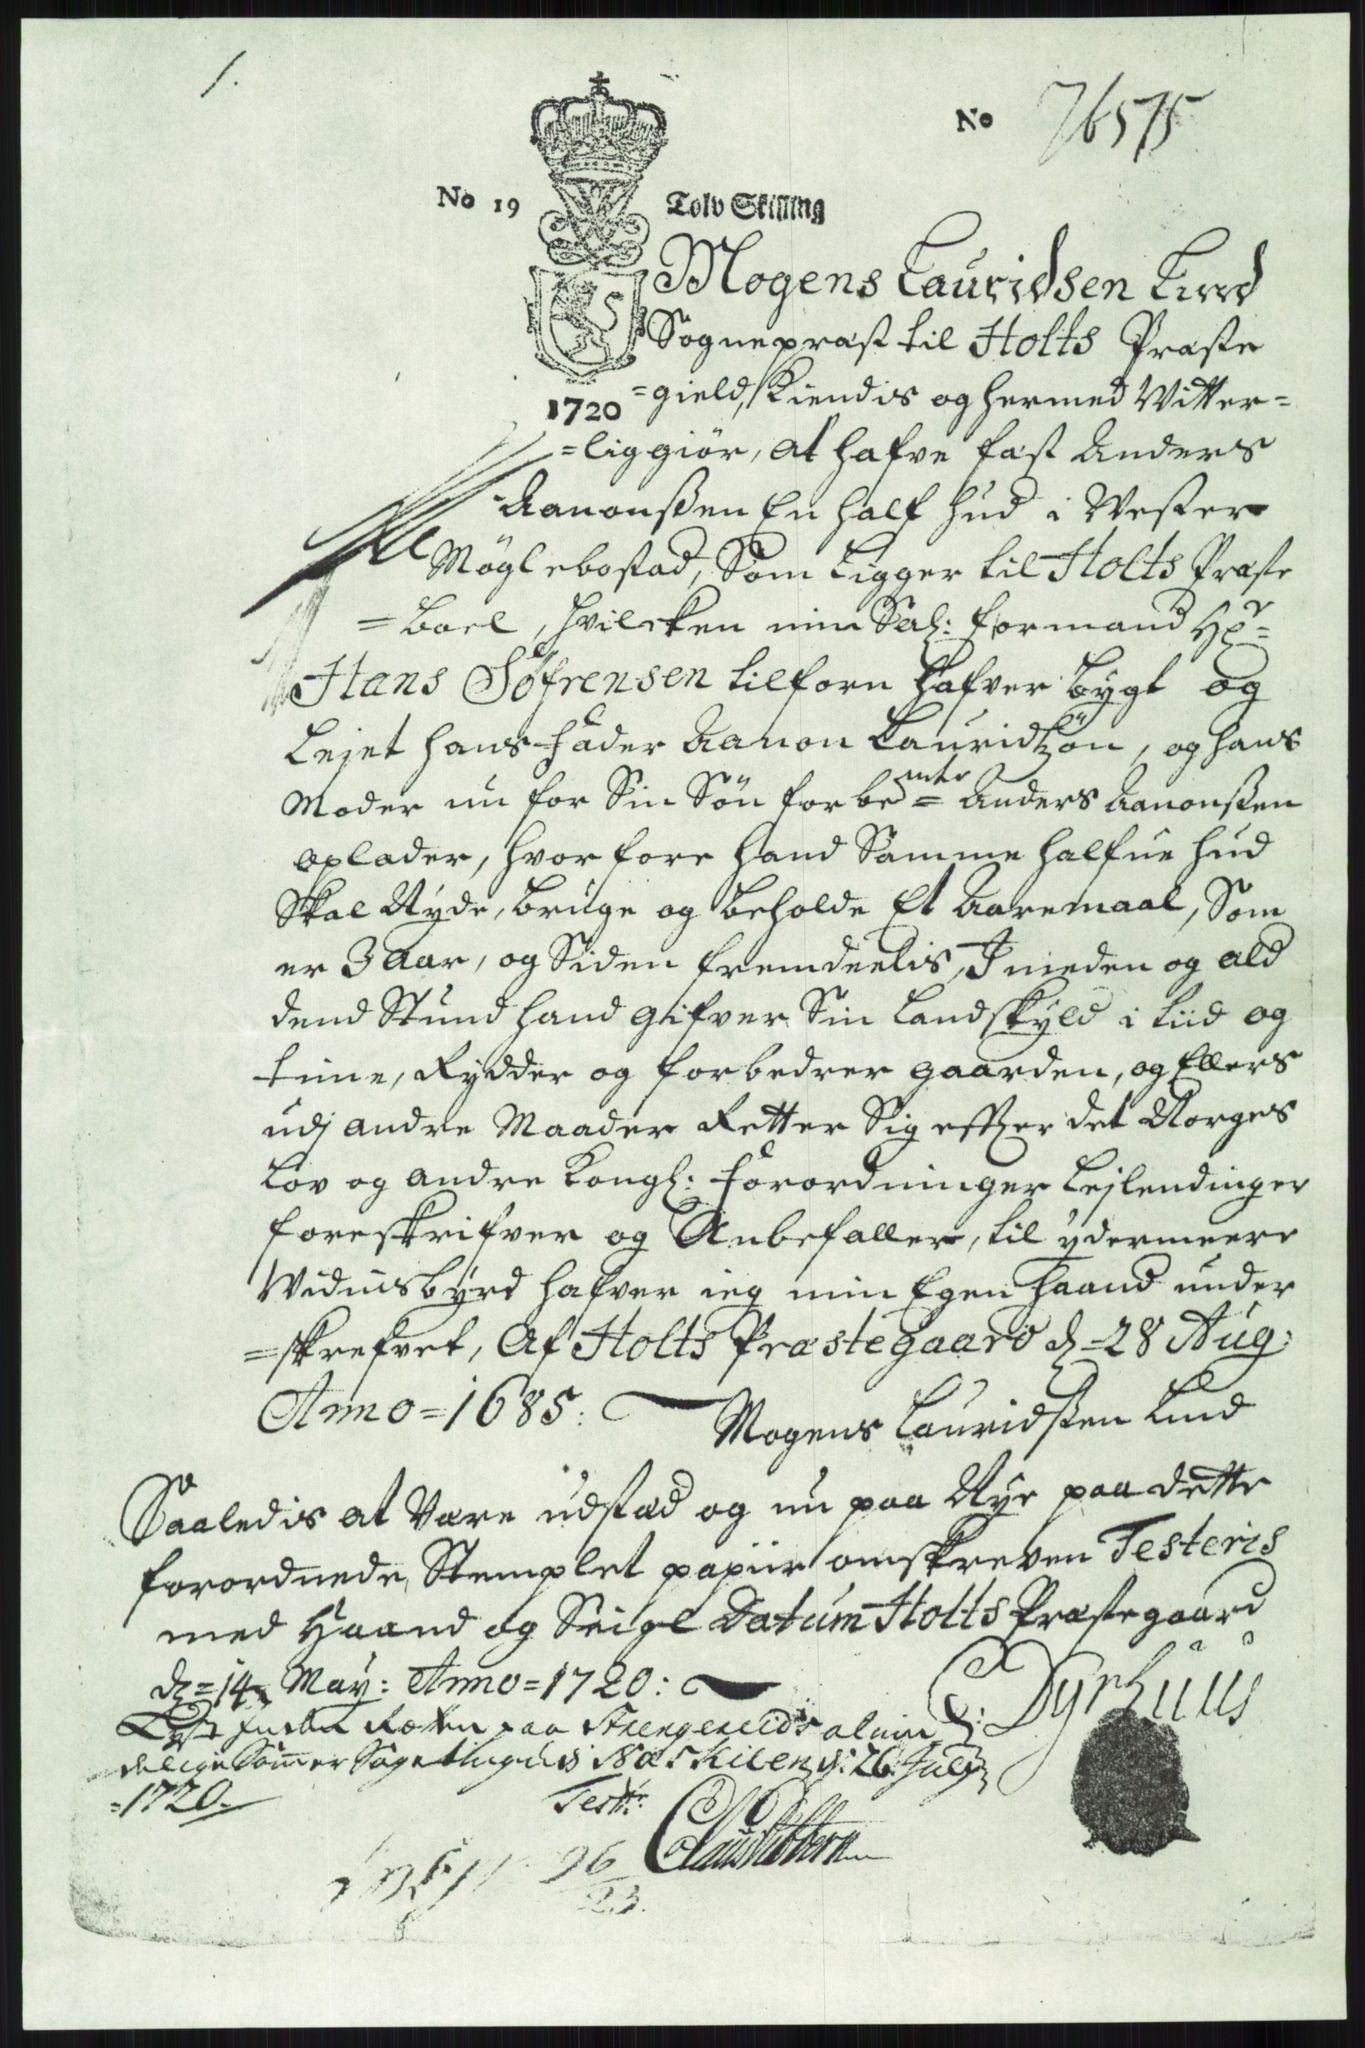 1.
No 76575
No 19 Tolv Skilling
Mogens Lauridsen Lind
Sognepræst til Holts Præste
1720 =gield, Kiendis og hermed Witter=
=liggiör, at hafve fæst Anders
Aanonsßen En half hud i Wester
Möglebostad, Som Ligger til Holts Præste
=boel, hvilcken min Sal: formand Hr=
Hans Söfrensen tilforn hafver bygt og
Lejet hans fader Aanon Lauridtzön, og hans
Moder nu for Sin Sön forbemte= Anders Aanonsßen
oplader, hvorfore hand Samme halfue hud
Skal Nyde, bruge og beholde Et Aaremaal, Som
er 3 Aar, og Siden fremdeelis, I meden og ald
dend Stund hand gifver Sin Landskyld i tiid og
time, Rydder og forbedrer gaarden, og Ellers
udj andre Maader Retter Sig effter det Norges
Lov og andre Kongl: forordninger Lejlendinger
foreskrifver og Anbefaller, til ydermeere
Widnisbyrd hafver ieg min Egen haand under
=skrefvet, Af Holts Præstegaard d =28 Aug:
Anno =1685: Mogens Lauridsßen Lind
Saaledis at være udstæd og nu paa Nye paa dette
forordnede Stemplet papiir omskreven Testeris
med Haand og Seigl Datum Holts Præstegaard
d =14 May: Anno =1720: C: Dyrhuus
Lyst for Retten paa Strengereids almin
delige Sommer Sage ting i Næskilen d: 26 July
=1720. Testr: Claus
26
23.